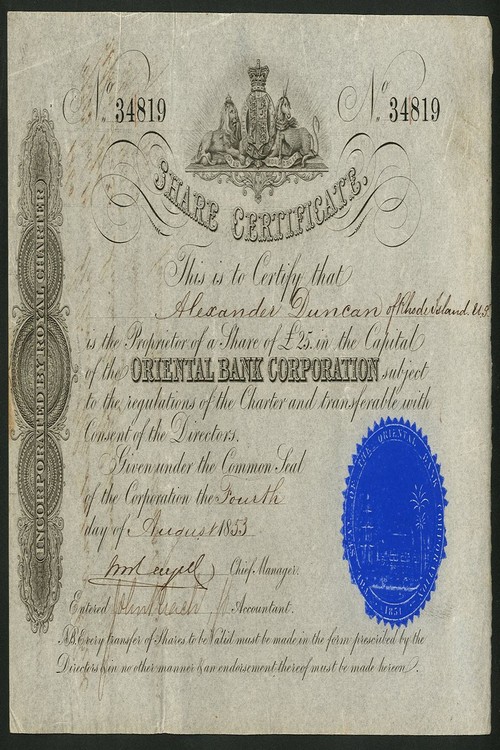 No. 34819
No. 34819
SHARE CERTIFICATE.
This is to Certify that
Alexander Duncan of Rhode Island. U.S.
is the Proprietor of a Share of £25. in the Capital
of the ORIENTAL BANK CORPORATION subject
to the regulations of the Charter and transferable with
Consent of the Directors.
Given under the Common Seal
of the Corporation the Fourth
day of August 1853
Chief Manager.
Entered Accountant.
N.B. Every transfer of Shares to be Valid must be made in the form prescribed by the
Directors & in no other manner & an endorsement thereof must be made hereon.
INCORPORATED BY ROYAL CHARTER
SEAL OF THE ORIENTAL BANK CORPORATION
1851